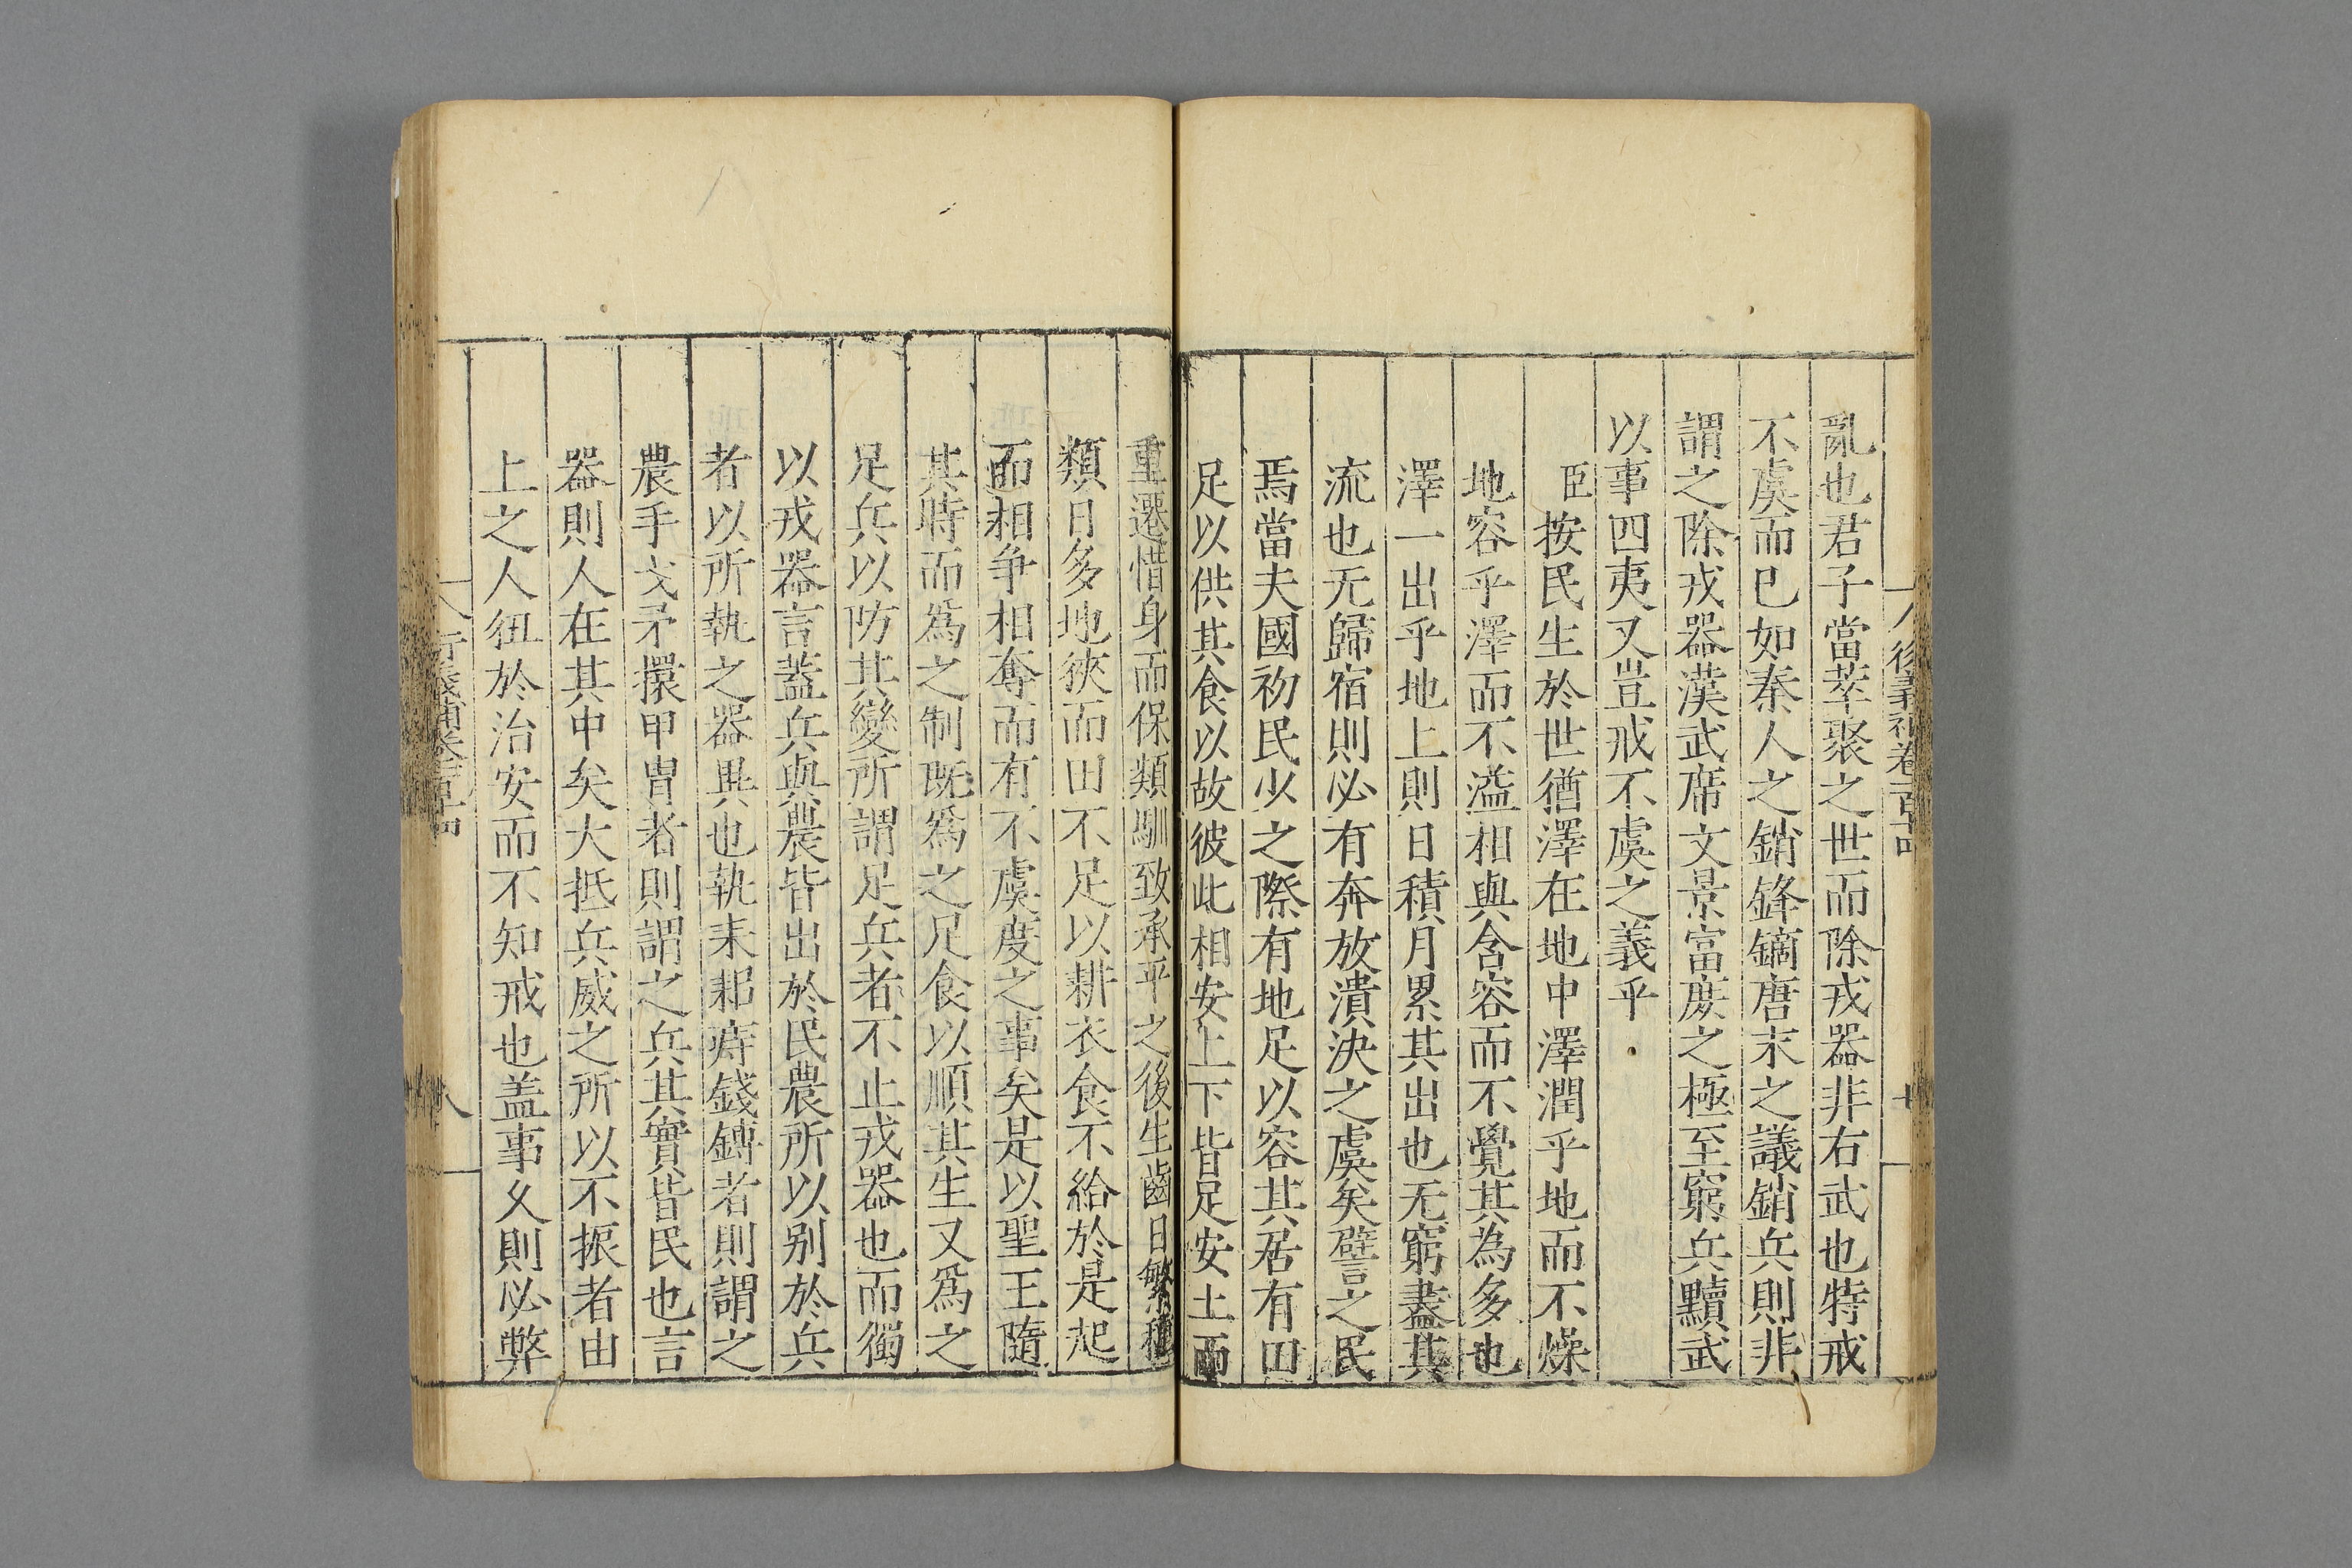 亂也君子當萃聚之世而除戎器非右武也特戒
不虞而已如秦人之銷鋒鏑唐末之議銷兵則非
謂之除戎器漢武席文景富庶之極至窮兵黷武
以事四夷又豈戒不虞之義乎
臣按民生於世猶澤在地中澤潤乎地而不燥
地容乎澤而不溢相與含容而不覺其為多也
澤一出乎地上則日積月累其出也无窮盡其
流也无歸宿則必有奔放潰決之虞矣譬之民
焉當夫國初民少之際有地足以容其居有田
足以供其食以故彼此相安上下皆足安土而
重遷惜身而保類馴致承平之後生齒日繁種
類日多地狹而田不足以耕衣食不給於是起
而相爭相奪而有不虞度之事矣是以聖王隨
其時而爲之制既爲之足食以順其生又爲之
足兵以防其變所謂足兵者不止戎器也而獨
以戎器言蓋兵與農皆出於民農所以别於兵
者以所執之器異也執耒耜庤錢鎛者則謂之
農手戈矛擐甲冑者則謂之兵其實皆民也言
器則人在其中矣大抵兵威之所以不振者由
上之人狃於治安而不知戒也盖事久則必弊
衍義補卷百十四
八